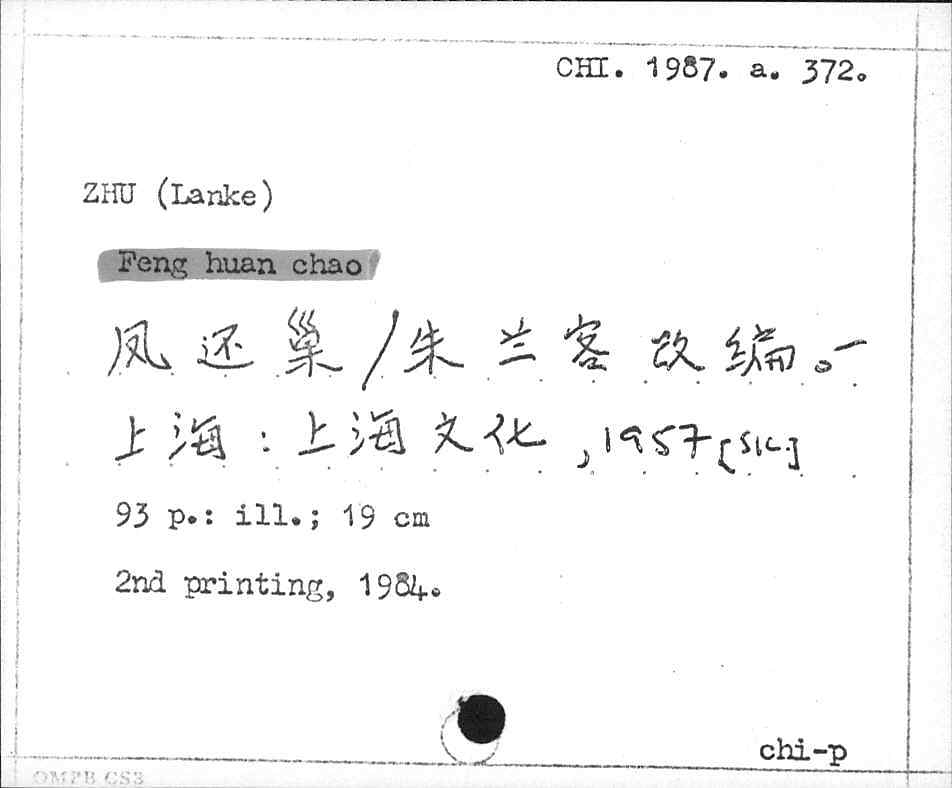 CHI. 1987. a. 372.
ZHU (Lanke)
Feng huan chao
凤还巢/朱兰客改编。—
上海:上海文化,1957[SIC]
93 p.: ill.; 19 cm
2nd printing, 1984.
chi-p
OMPB CS3